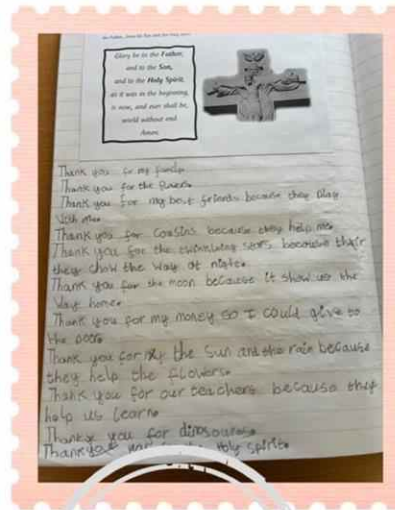 Glory be to the Father,
and to the Son,
and to the Holy Spirit.
as it was in the beginning
is now, and ever shall be,
world without end
Amen.
Thank you for my family.
Thank you for the flowers.
Thank you for my best friends because they play
with me.
Thank you for cousins because they help me.
Thank you for the twinkling stars because their
they show the way at night.
Thank you for the moon because it show us the
way home.
Thank you for my money so I could give to
the poor.
Thank you for the Sun and the rain because
they help the flowers.
Thank you for our teachers because they
help us learn.
Thank you for dinosours.
Thank you Holy Spirit.